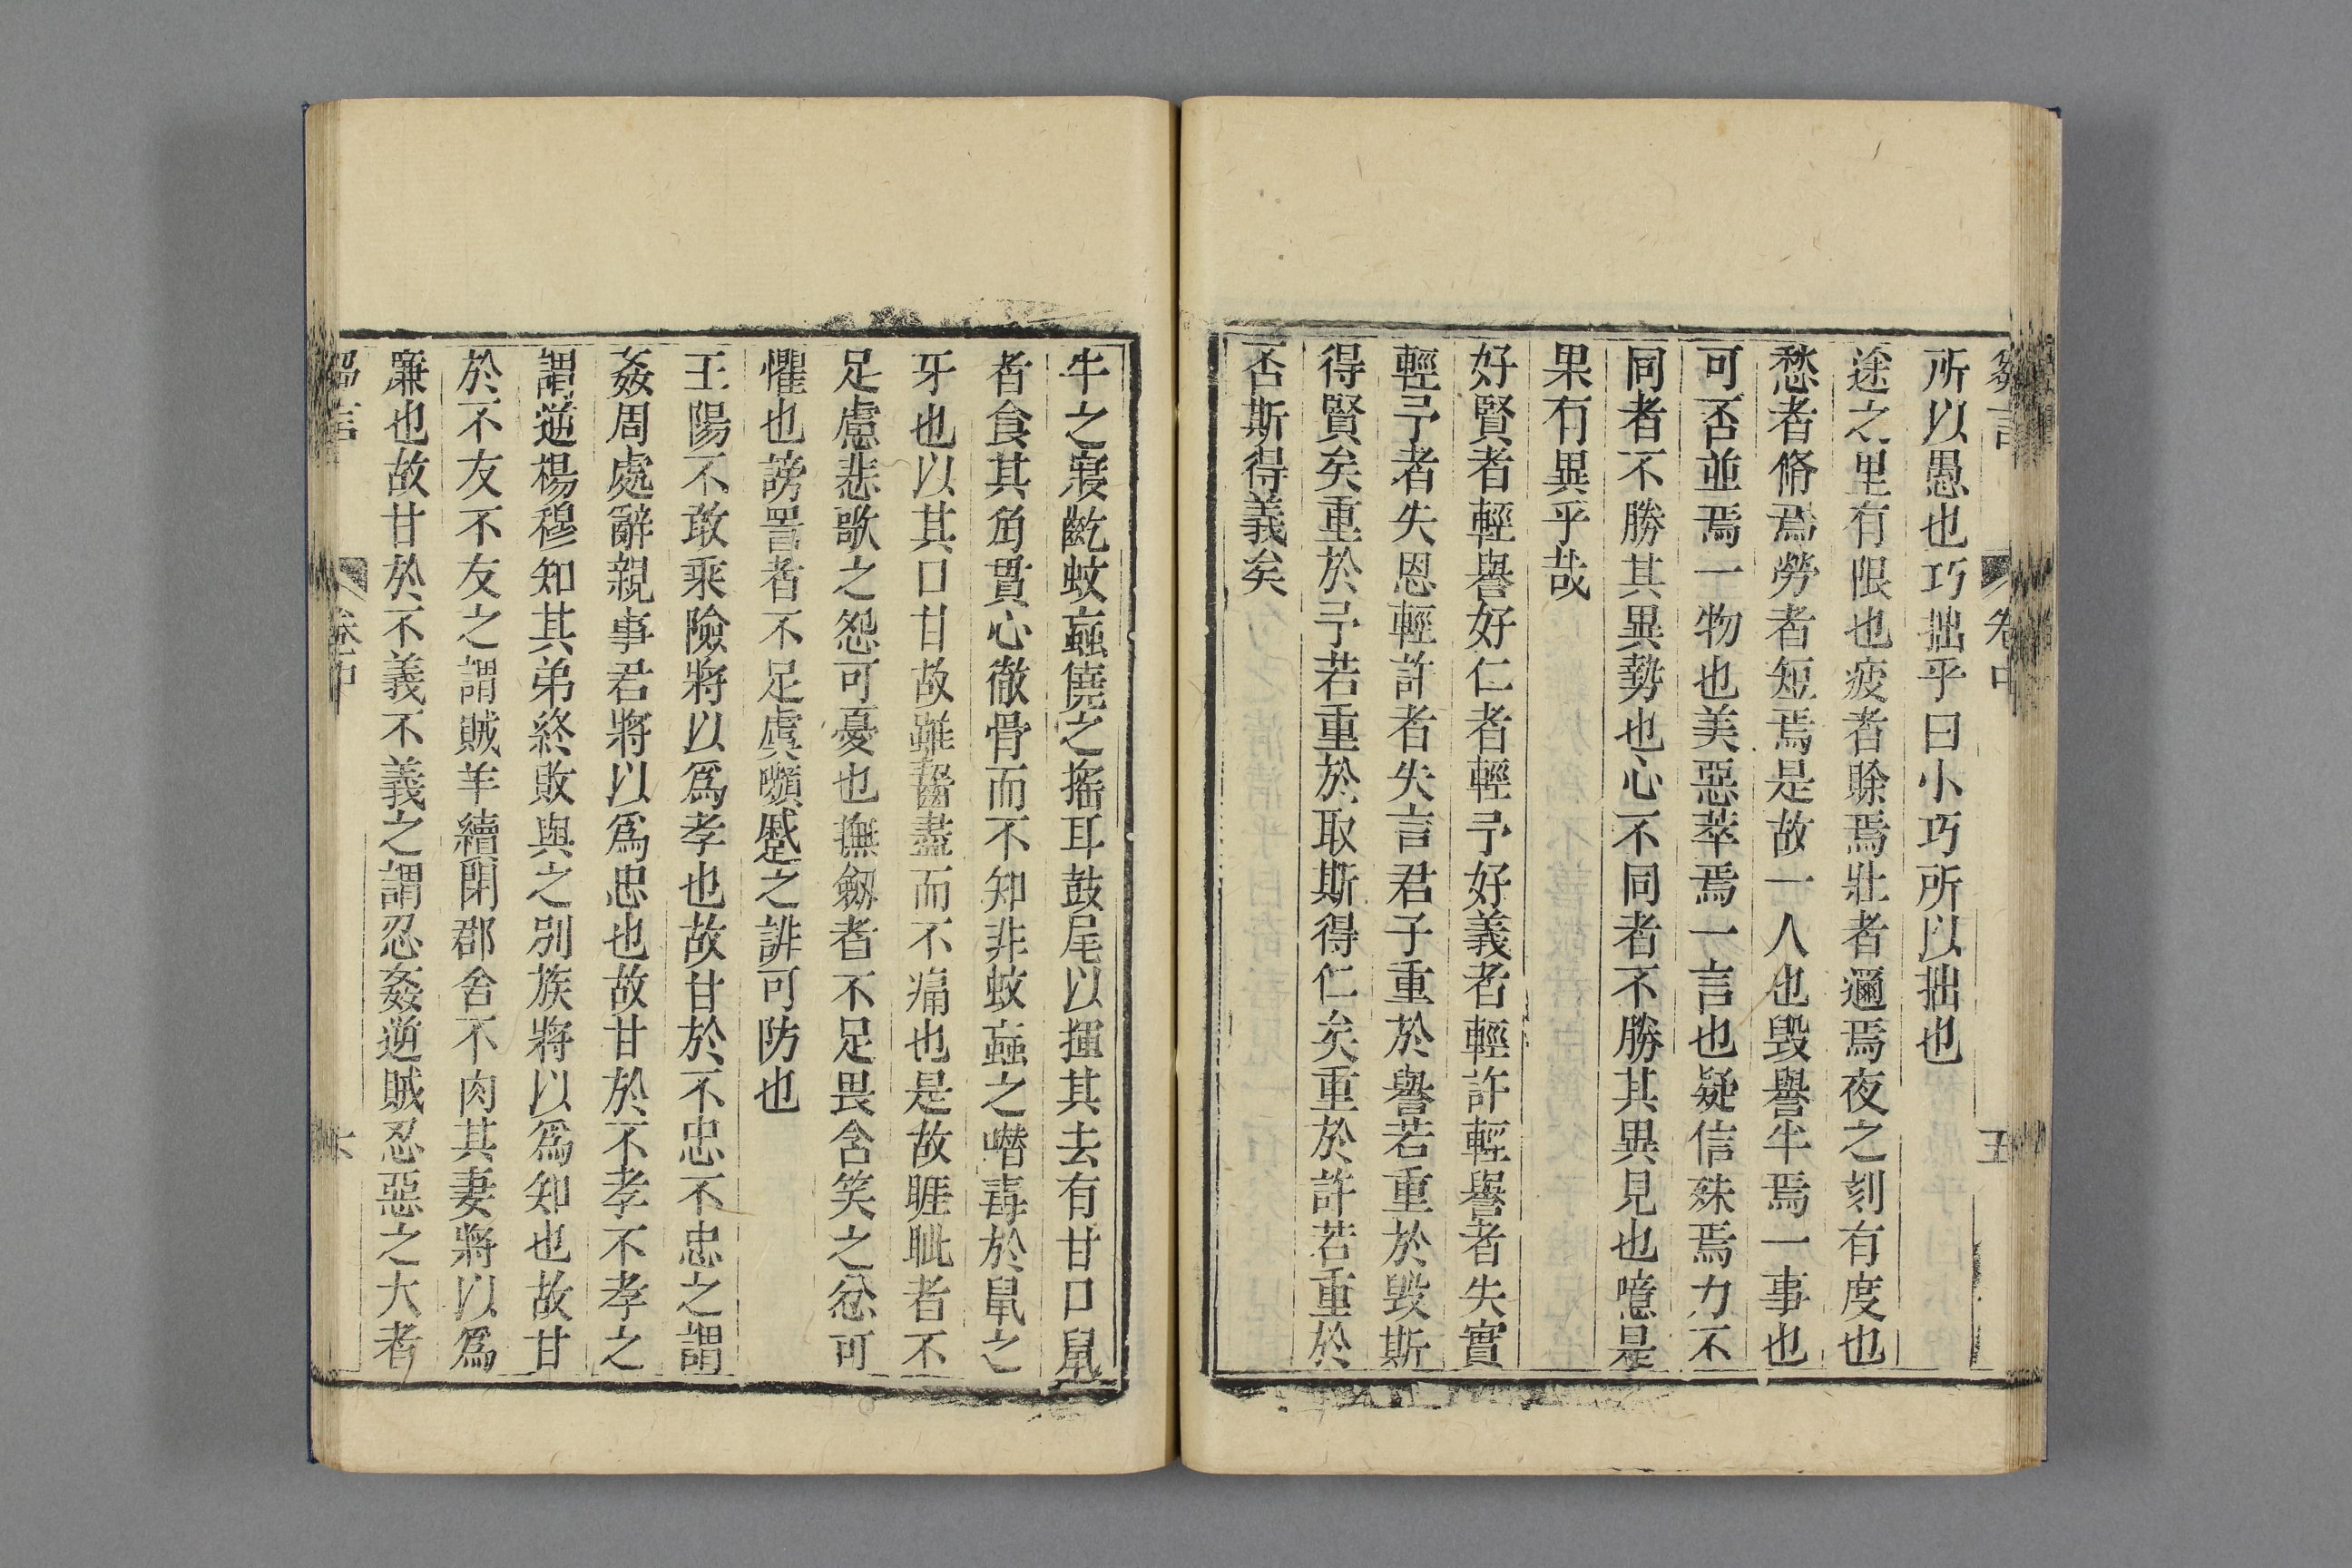 芻言 卷中 五
所以愚也巧拙乎曰小巧所以拙也
途之里有限也疲者賒焉壯者邇焉夜之刻有度也
愁者脩焉勞者短焉是故一人也毀譽半焉一事也
可否並焉一物也美惡萃焉一言也疑信殊焉力不
同者不勝其異勢也心不同者不勝其異見也噫是
果有異乎哉
好賢者輕譽好仁者輕予好義者輕許輕譽者失實
輕予者失恩輕許者失言君子重於譽若重於毀斯
得賢矣重於予若重於取斯得仁矣重於許若重於
否斯得義矣
牛之寢齕蚊蝱僥之搖耳鼓尾以揮其去有甘口鼠
者食其角貫心徹骨而不知非蚊蝱之噆毒於鼠之
牙也以其口甘故雖齧盡而不痛也是故睚眦者不
足慮悲歌之怨可憂也撫劒者不足畏含笑之忿可
懼也謗詈者不足虞嚬蹙之誹可防也
王陽不敢乘險將以爲孝也故甘於不忠不忠之謂
姦周處辭親事君將以爲忠也故甘於不孝不孝之
謂逆楊穆知其弟終敗與之別族將以爲知也故甘
於不友不友之謂賊羊續閉郡舍不肉其妻將以爲
廉也故甘於不義不義之謂忍姦逆賊忍惡之大者
芻言 卷中 六